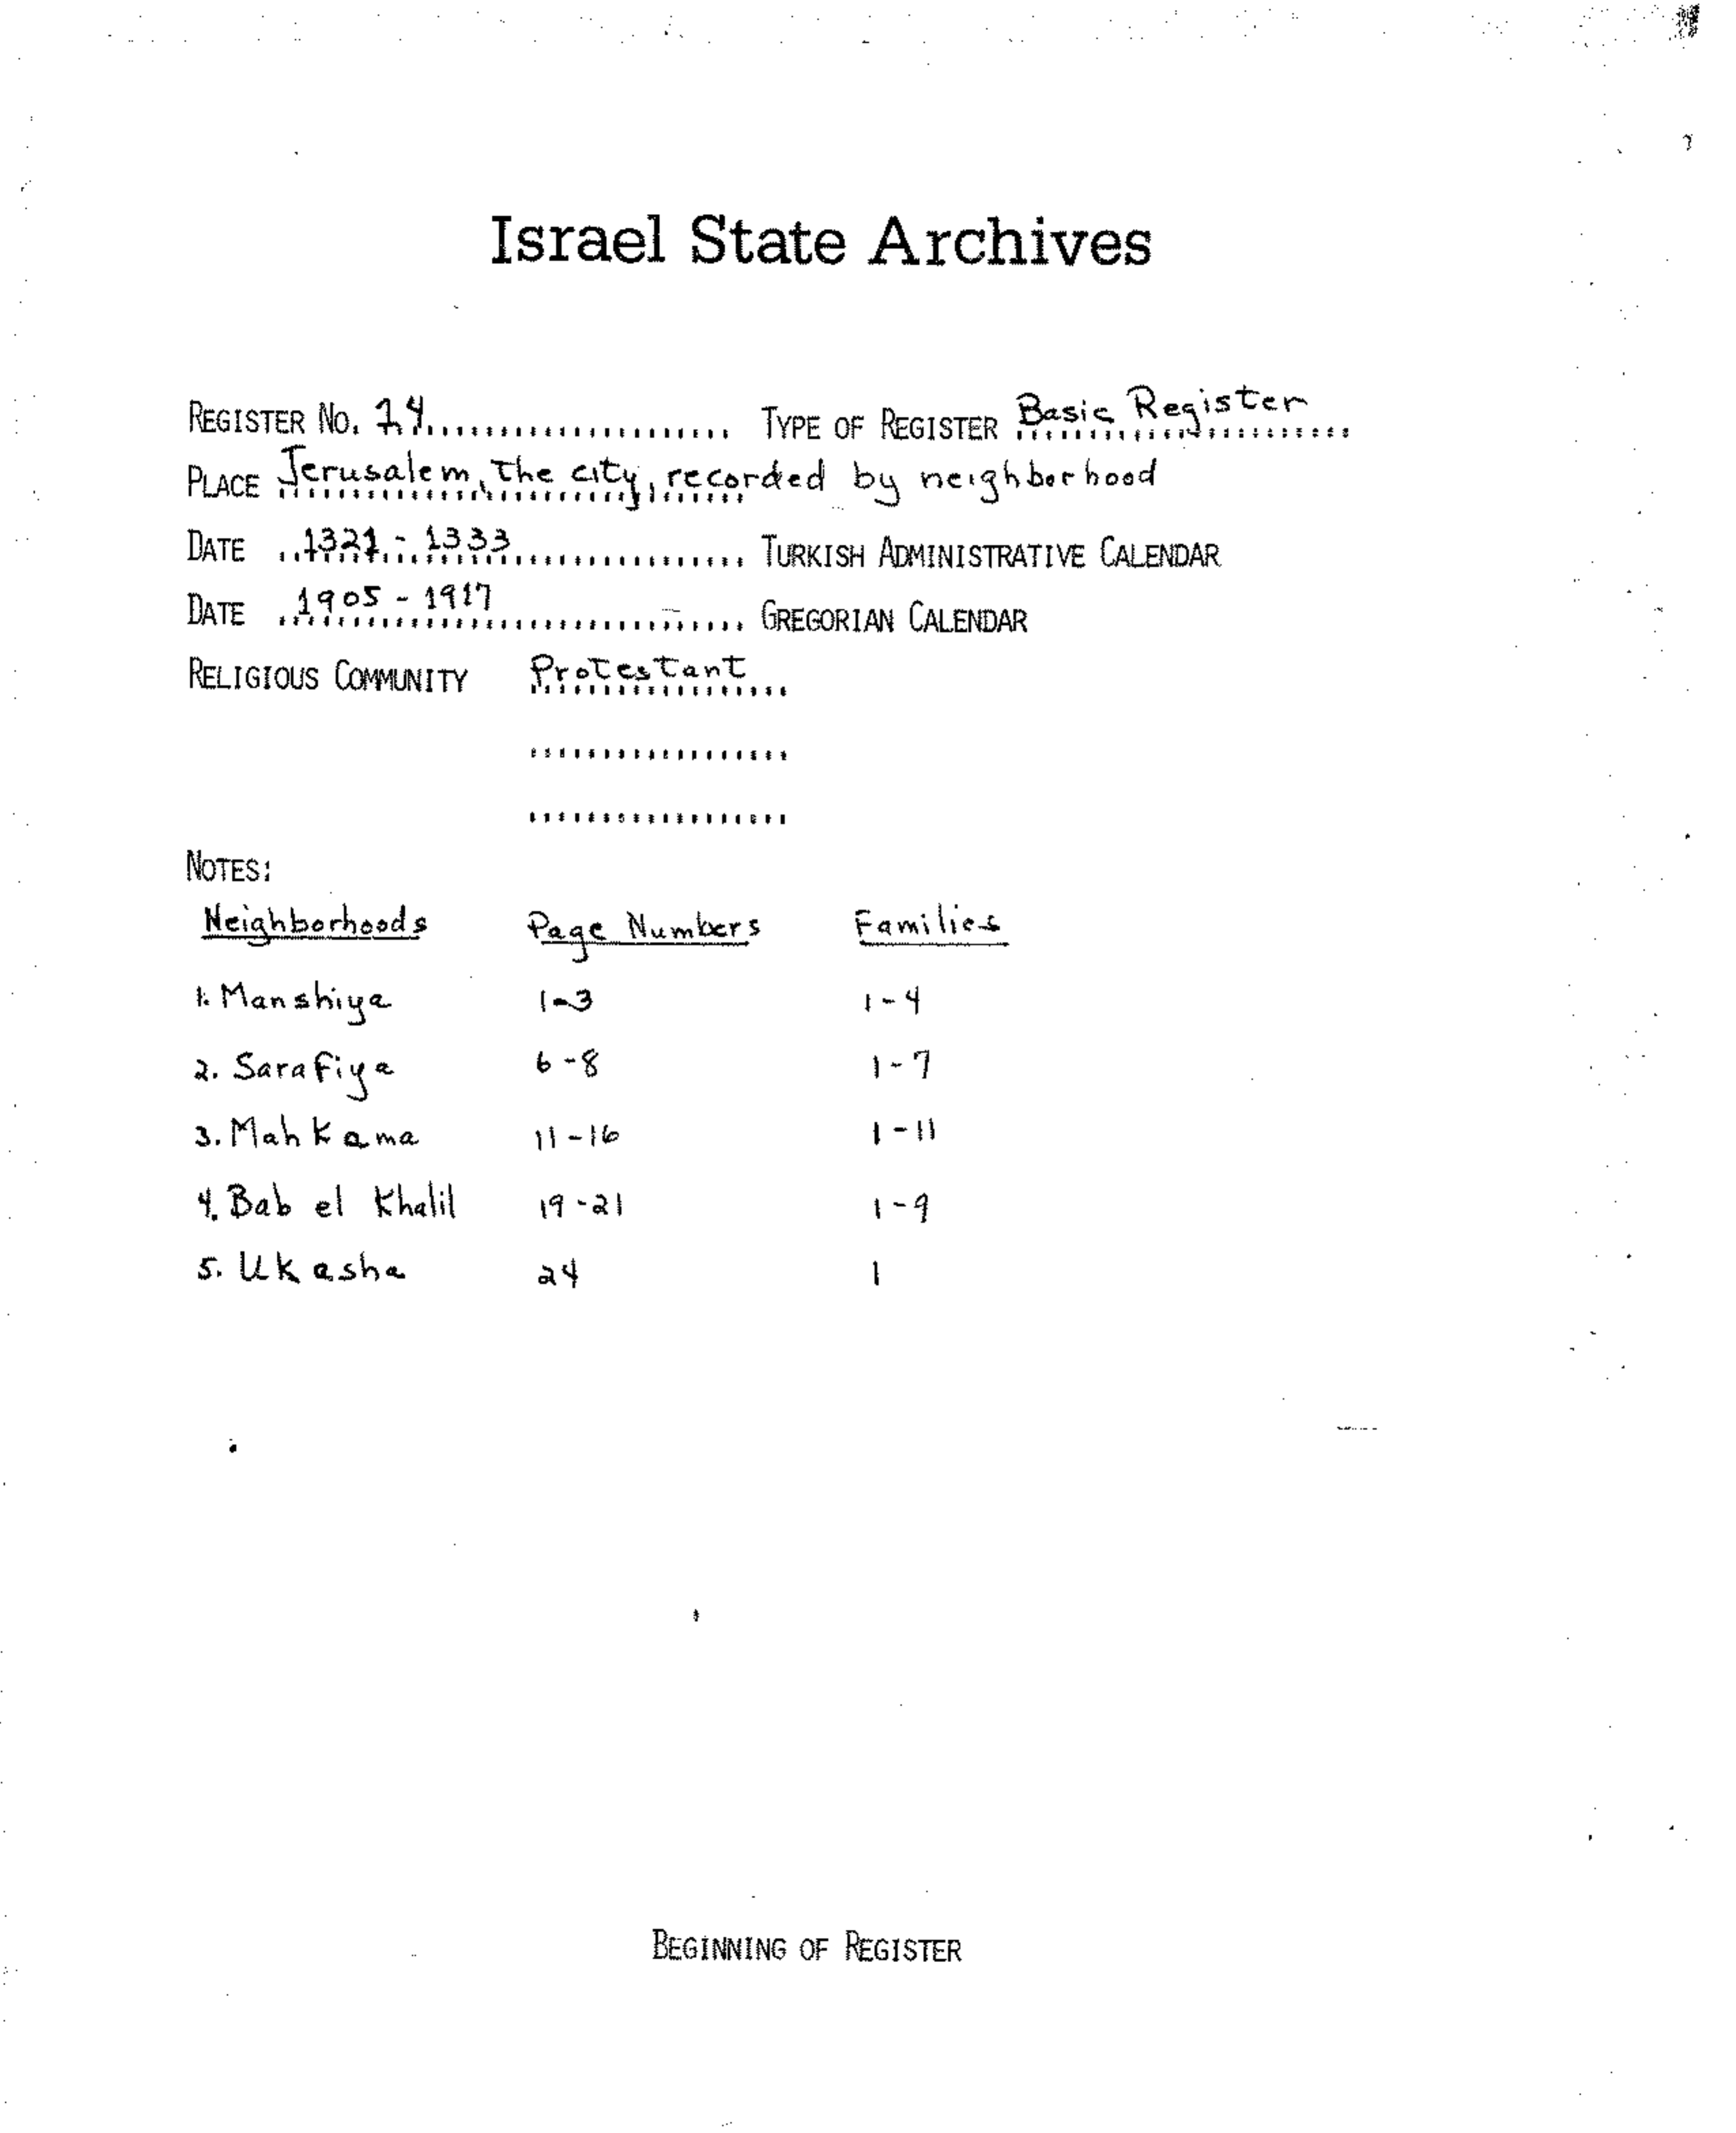 Israel State Archives
REGISTER No. 14 TYPE OF REGISTER Basic Register
PLACE Jerusalem, the city, recorded by neighborhood
DATE 1321 - 1333 TURKISH ADMINISTRATIVE CALENDAR
DATE 1905 - 1917 GREGORIAN CALENDAR
RELIGIOUS COMMUNITY Protestant
NOTES:
Neighborhoods Page Numbers Families
1. Manshiya 1-3 1-4
2. Sarafiya 6-8 1-7
3. Mahkama 11-16 1-11
4. Bab el Khalil 19-21 1-9
5. Ukasha 24 1
BEGINNING OF REGISTER